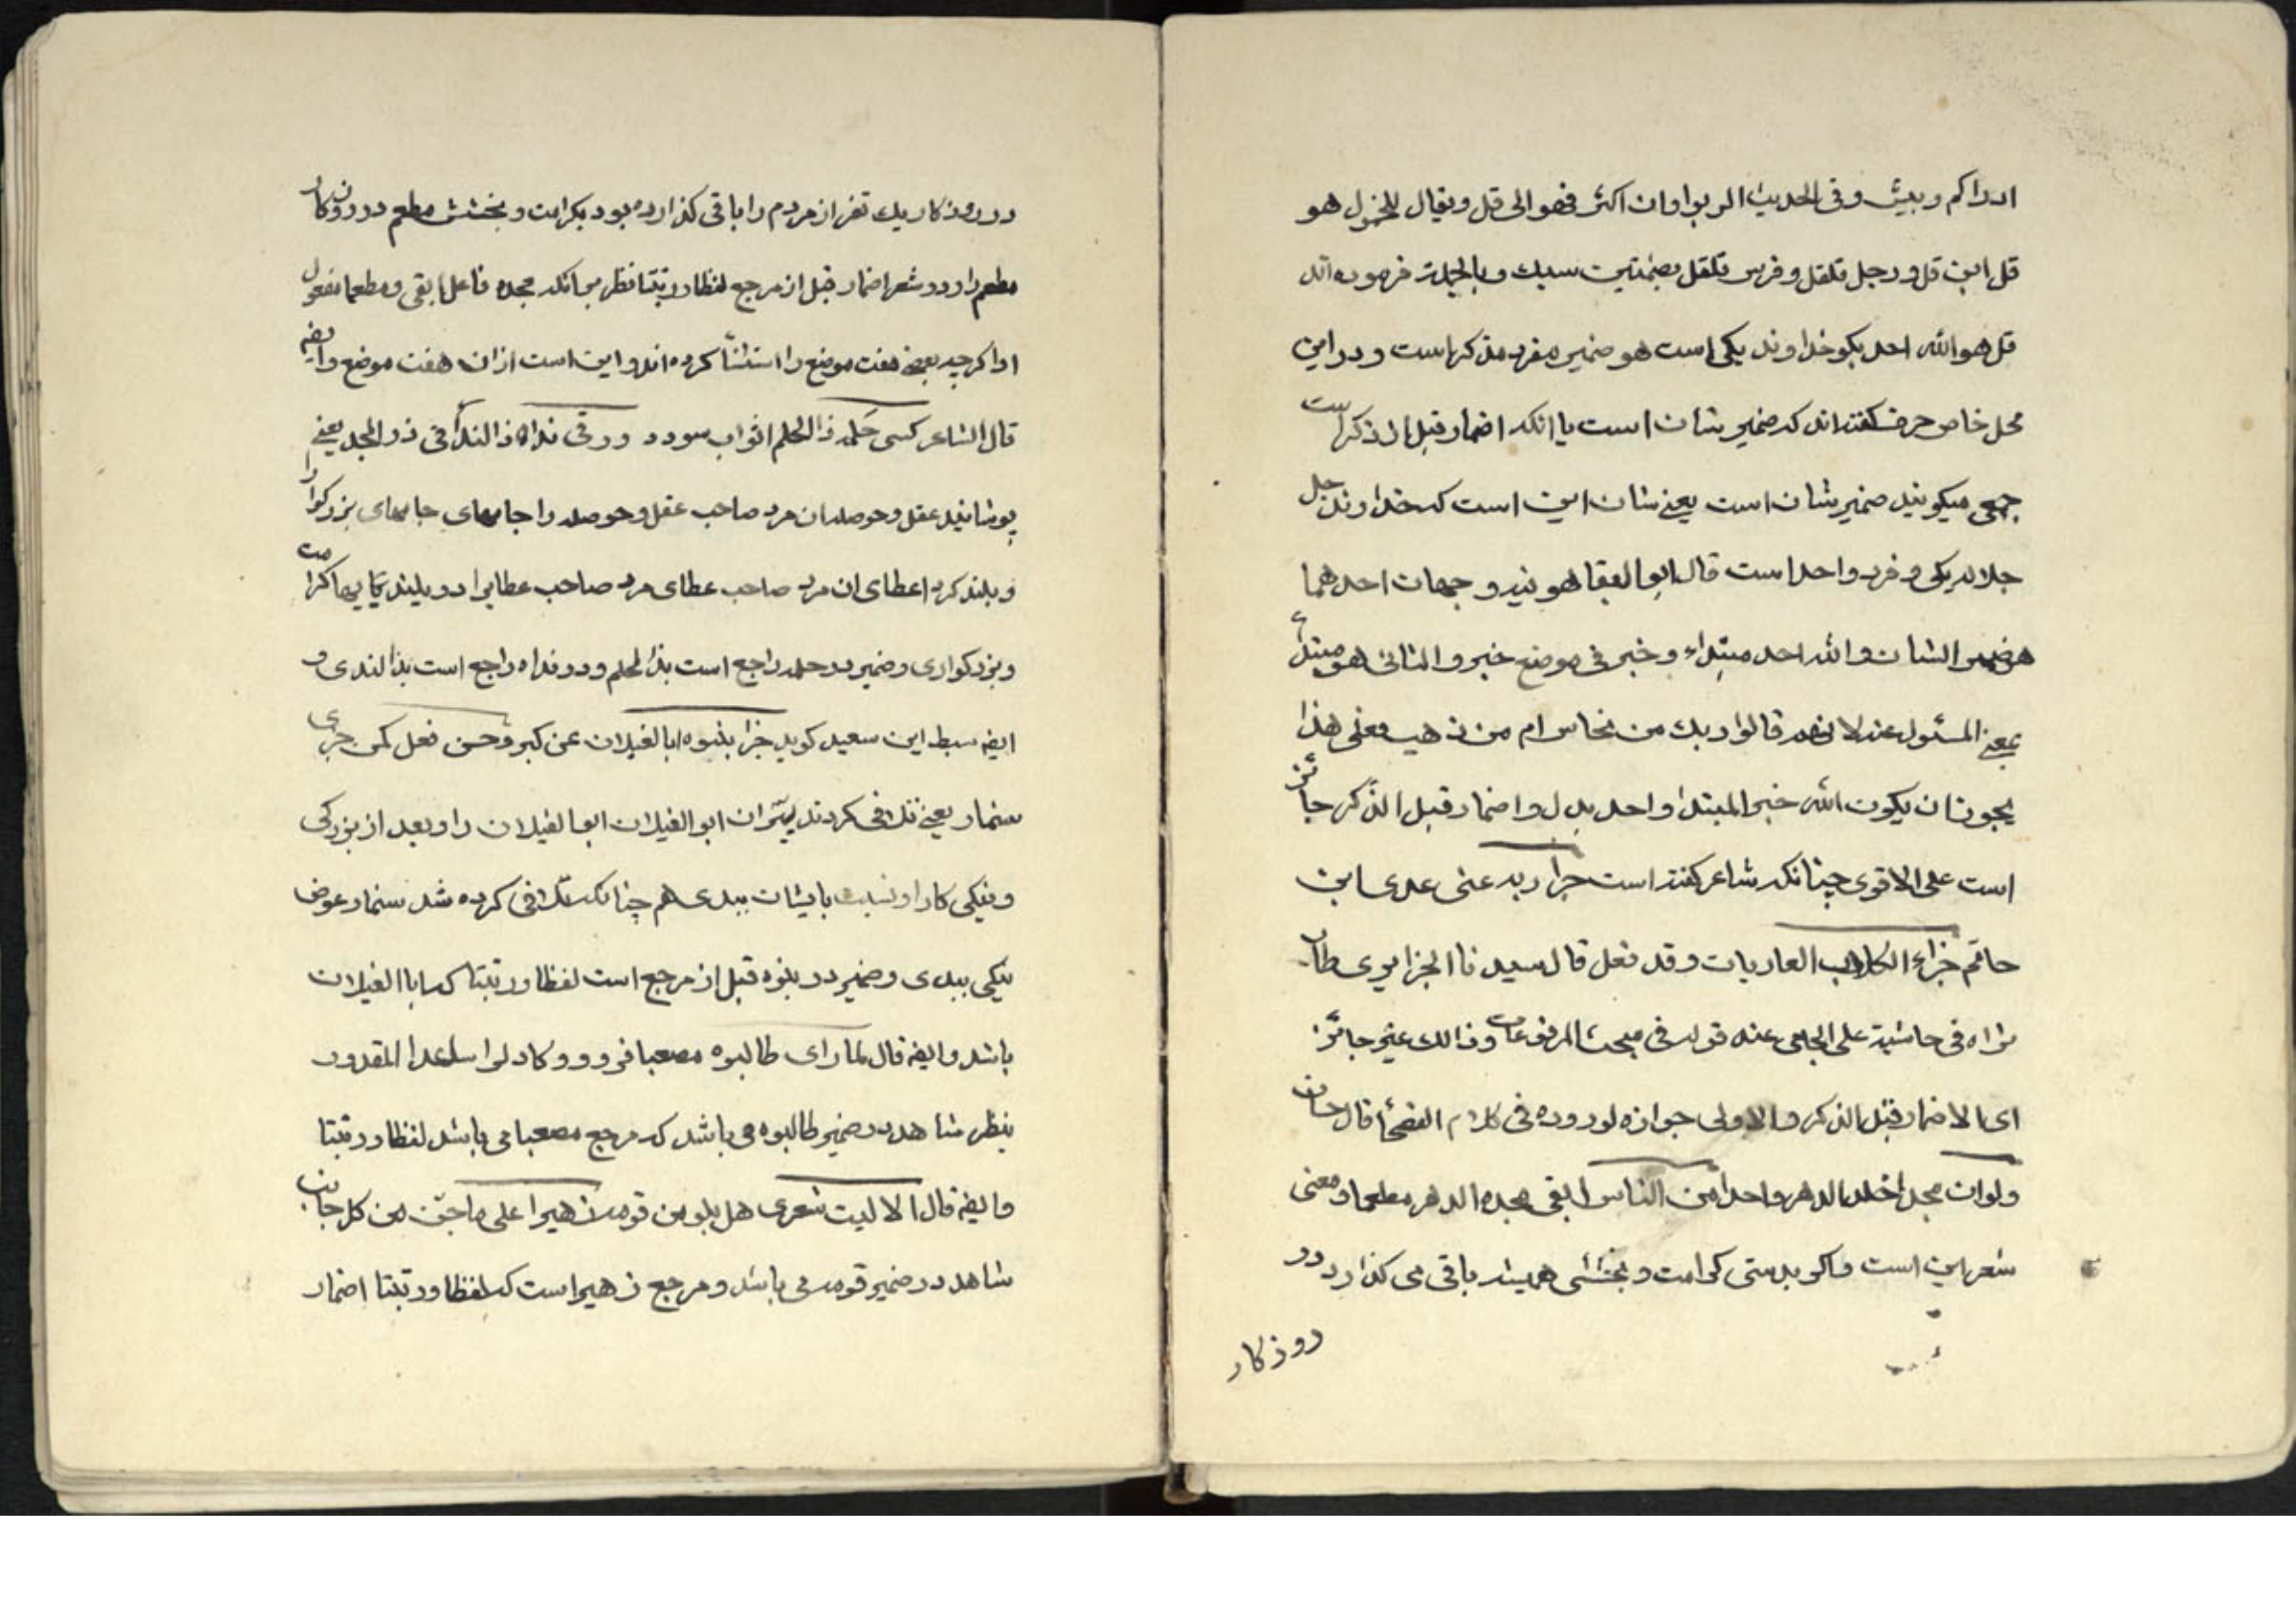 ادراکم و بیش و فی الحدیث الربوا وان اکثر فهو الی قل و یقال للخزل هو
قل ابن قل و رجل قلقل و فرس قلقل بضمتین سبک و بالجملة فرموده اند
قل هو الله احد بکو خداوند یکی است هو ضمیر مفرد مذکر است و در این
محل خاص حرف کفته اند که ضمیر شان است یا انکه اضمار قبل الذکر است
جمعی میکویند ضمیر شان است یعنی شان این است که خداوند جل
جلاله یکی و فرد واحد است قال ابو البقا هو فیه وجهان احدهما
هو ضمیر الشان و الله احد مبتداء و خبر فی موضع خبر و الثانی هو مبتداء
بمعنی المسئول عنه لانهم قالوا ربک من نحاس ام من ذهب فعلی هذا
یجوز ان یکون الله خبر المبتدا و احد بدل و اضمار قبل الذکر جائز
است علی الاقوی چنانکه شاعر کفته است جزا ربه عنی عدی ابن
حاتم جزاء الکلاب العاویات و قد فعل قال سید نا الجزایری طاب
ثراه فی حاشیة علی الجامی عند قوله فی مبحث المرفوعات و ذالک غیر جائز
ای الاضمار قبل الذکر و الاولی جوازه لوروده فی کلام الفصحأ قال حسان
ولو ان مجدا اخلد الدهر واحدا من الناس ابقی مجده الدهر مطعما و معنی
شعر این است و اکر بدرستی کرامت و بخششی همیشه باقی می کذارد در
روزکار
در روزکار یک نفر از مردم را باقی کذارده بود بکرامت و بخشش مطعم در روزکار
مطعم را و در شعر اضمار قبل از مرجع لفظا و رتبتا نظر بر انکه مجده فاعل ابقی و مطعما مفعول
او اکرچه بعضی هفت موضع را استثنأ کرده اند و این است از ان هفت موضع و ایضه
قال الشاعر کسی حلمه ذا الحلم اثواب سودد و رقی نداه ذا الندأ فی ذر المجد یعنی
پوشانید عقل و حوصله ان مرد صاحب عقل و حوصله را جامهای جامهای بزرکوار را
و بلند کرد اعطای ان مرد صاحب عطای مرد صاحب عطایرا در بلندیهای کرامت
و بزرکواری و ضمیر در حلمه راجع است بذالحلم و در نداه راجع است بذالندی و
ایضه سبط ابن سعید کوید جزا بنوه ابا الغیلان عن کبر و حسن فعل کمی جزی
سنمار یعنی تلافی کردند پسران ابو الغیلان ابو الغیلان را و بعد از بزرکی
و نیکی کار او نسبت بایشان ببدی هم چنانکه تلافی کرده شد سنمار عوض
نیکی ببدی و ضمیر در بنوه قبل از مرجع است لفظا و رتبتا که ابا الغیلان
باشد و ایضه قال لما رای طالبوه مصعبا و کاد لوا ساعد المقدور
بنظر شاهد در ضمیر طالبوه می باشد که مرجع مصعبا می باشد لفظا و رتبتا
و ایضه قال الا لیت شعری هل یلومن قومه زهیرا علی ما جر من کل جانب
شاهد در ضمیر قومه می باشد و مرجع زهیرا است که لفظا و رتبتا اضمار